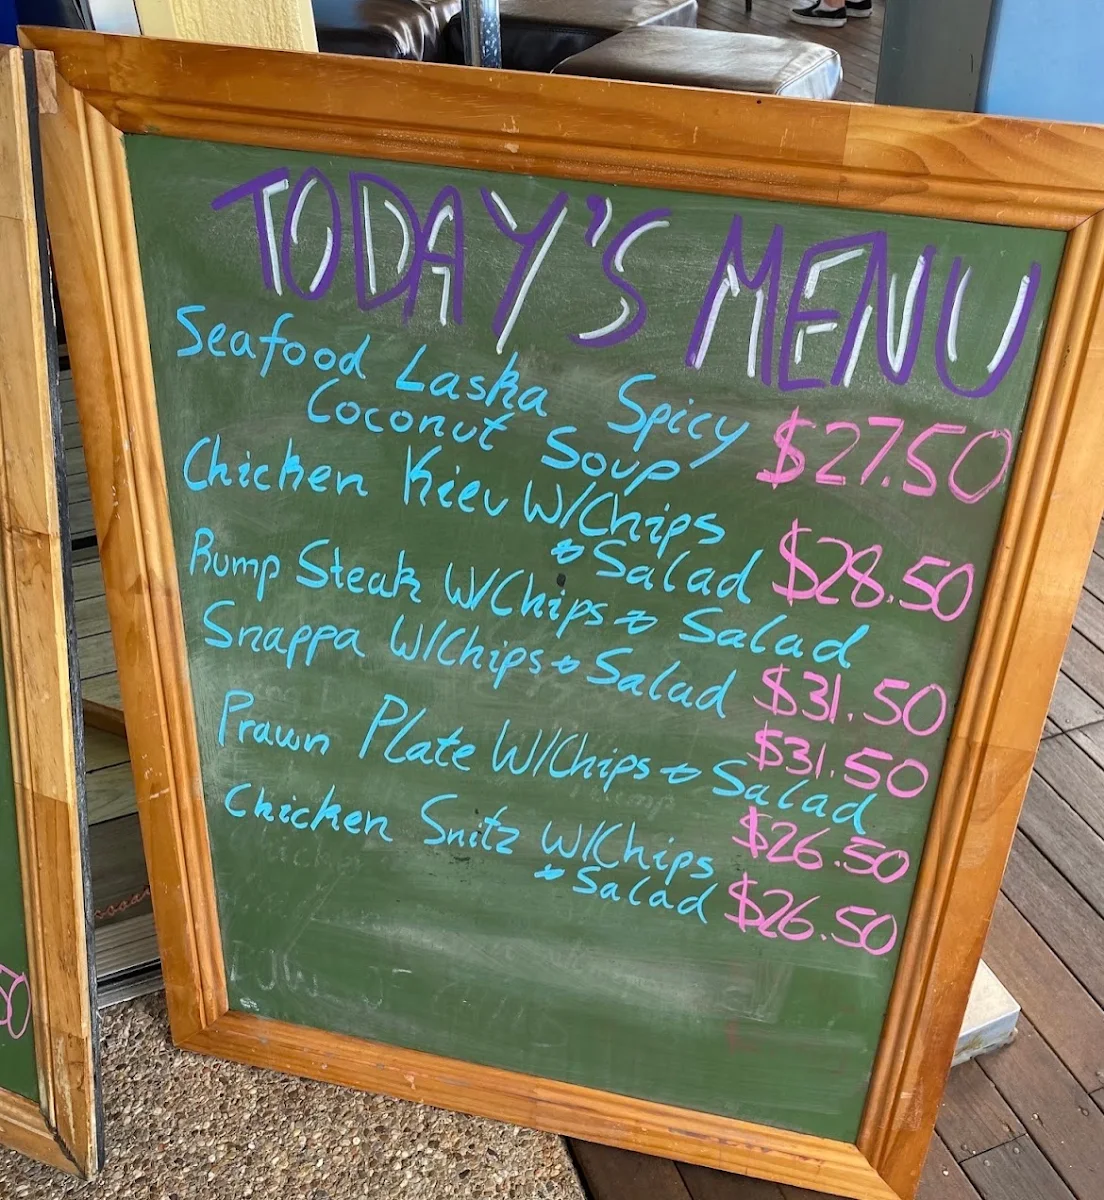 TODAY'S MENU
Seafood Laska Spicy
Coconut Soup $27.50
Chicken Kiev W/Chips
& Salad $28.50
Rump Steak W/Chips & Salad
$31.50
Snappa W/Chips & Salad
$31.50
Prawn Plate W/Chips & Salad
$26.50
Chicken Snitz W/Chips
& Salad $26.50
50